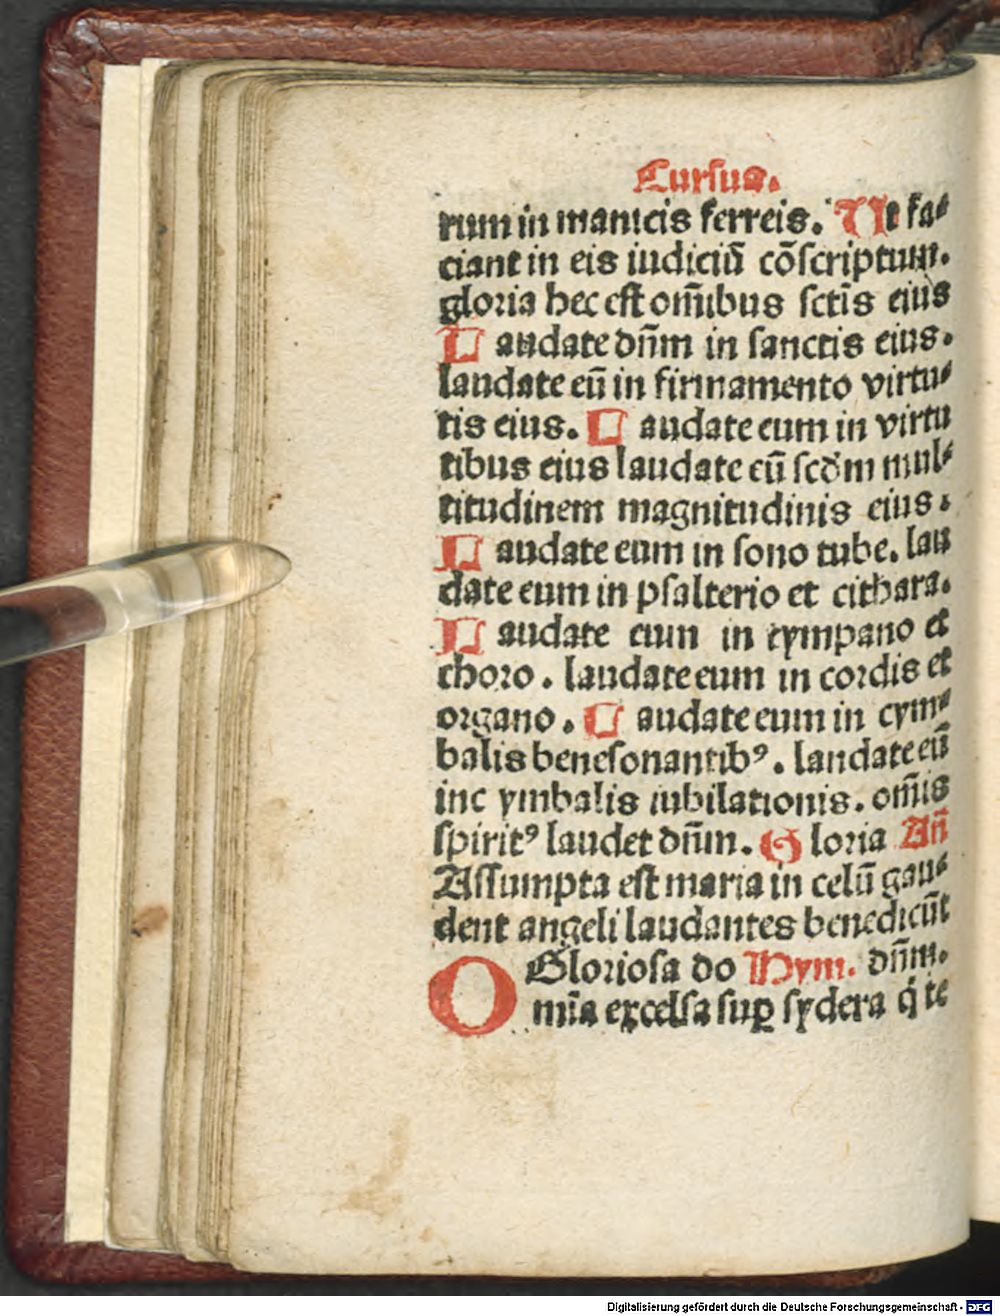 Cursus.
rum in manicis ferreis. Ut fa⸗
ciant in eis iudiciū cōscriptum.
gloria hec est om̄ibus sctīs eius
Laudate dn̄m in sanctis eius.
laudate eū in firmamento virtu⸗
tis eius. Laudate eum in virtu
tibus eius laudate eū scdm mul⸗
titudinem magnitudinis eius.
Laudate eum in sono tube. lau
date eum in psalterio et cithara.
Laudate eum in tympano et
choro. laudate eum in cordis et
organo. Laudate eum in cym⸗
balis benesonantibꝰ. laudate eū
inc ymbalis iubilationis. om̄is
spiritꝰ laudet dn̄m. Gloria An̄
Assumpta est maria in celū gau⸗
dent angeli laudantes benedicūt
O Gloriosa do Hym. dn̄m.
mīa excelsa suꝑ sydera q̇ te
Digitalisierung gefördert durch die Deutsche Forschungsgemeinschaft - DFG